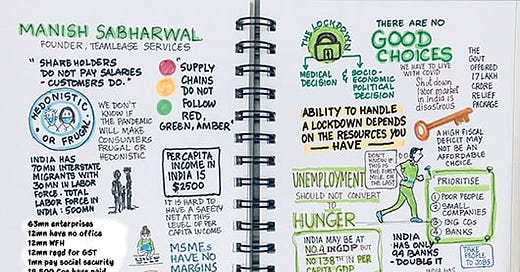 MANISH SABHARWAL
FOUNDER, TEAMLEASE SERVICES
"SHAREHOLDERS
DO NOT PAY SALARIES
- CUSTOMERS DO."
"SUPPLY
CHAINS
DO NOT
FOLLOW
RED,
GREEN, AMBER"
HEDONISTIC
OR FRUGAL
WE DON'T
KNOW IF
THE PANDEMIC
WILL MAKE
CONSUMERS
FRUGAL OR
HEDONISTIC
INDIA HAS
70MN INTERSTATE
MIGRANTS WITH
30MN IN LABOR
FORCE. TOTAL
LABOR FORCE IN
INDIA: 500MN
PER CAPITA
INCOME IN
INDIA IS
$2500
IT IS HARD TO
HAVE A SAFETY
NET AT THIS
LEVEL OF PER
CAPITA INCOME
63mn enterprises
12mn have no office
12mn WFH
12mn regd for GST
1mn pay social security
19,500 Cos have paid
MSMES
HAVE NO
MARGINS
THE LOCKDOWN
MEDICAL
DECISION
&
SOCIO-
ECONOMIC
POLITICAL
DECISION
THERE ARE NO
GOOD
CHOICES
WE HAVE TO LIVE
WITH COVID
Shut down
labor market
in India is
disastrous
THE
GOUT
OFFERED
17 LAKH
CRORE
RELIEF
PACKAGE
ABILITY TO HANDLE
A LOCKDOWN DEPENDS
ON THE RESOURCES YOU
HAVE
A HIGH FISCAL
DEFICIT MAY
NOT BE AN
AFFORDABLE
CHOICE
DON'T
KNOW IF
THIS IS THE
FIRST MILE
OR THE
LAST
UNEMPLOYMENT
SHOULD NOT
CONVERT TO
HUNGER
PRIORITISE
1 POOR PEOPLE
2 SMALL
COMPANIES
3 BIG COS
4 BANKS
INDIA MAY BE AT
NO.4 IN GDP BUT
NO 138TH IN PER
CAPITA GDP
INDIA
HAS ONLY
94 BANKS
- DOUBLE IT
TAKE
PEOPLE TO
JOBS